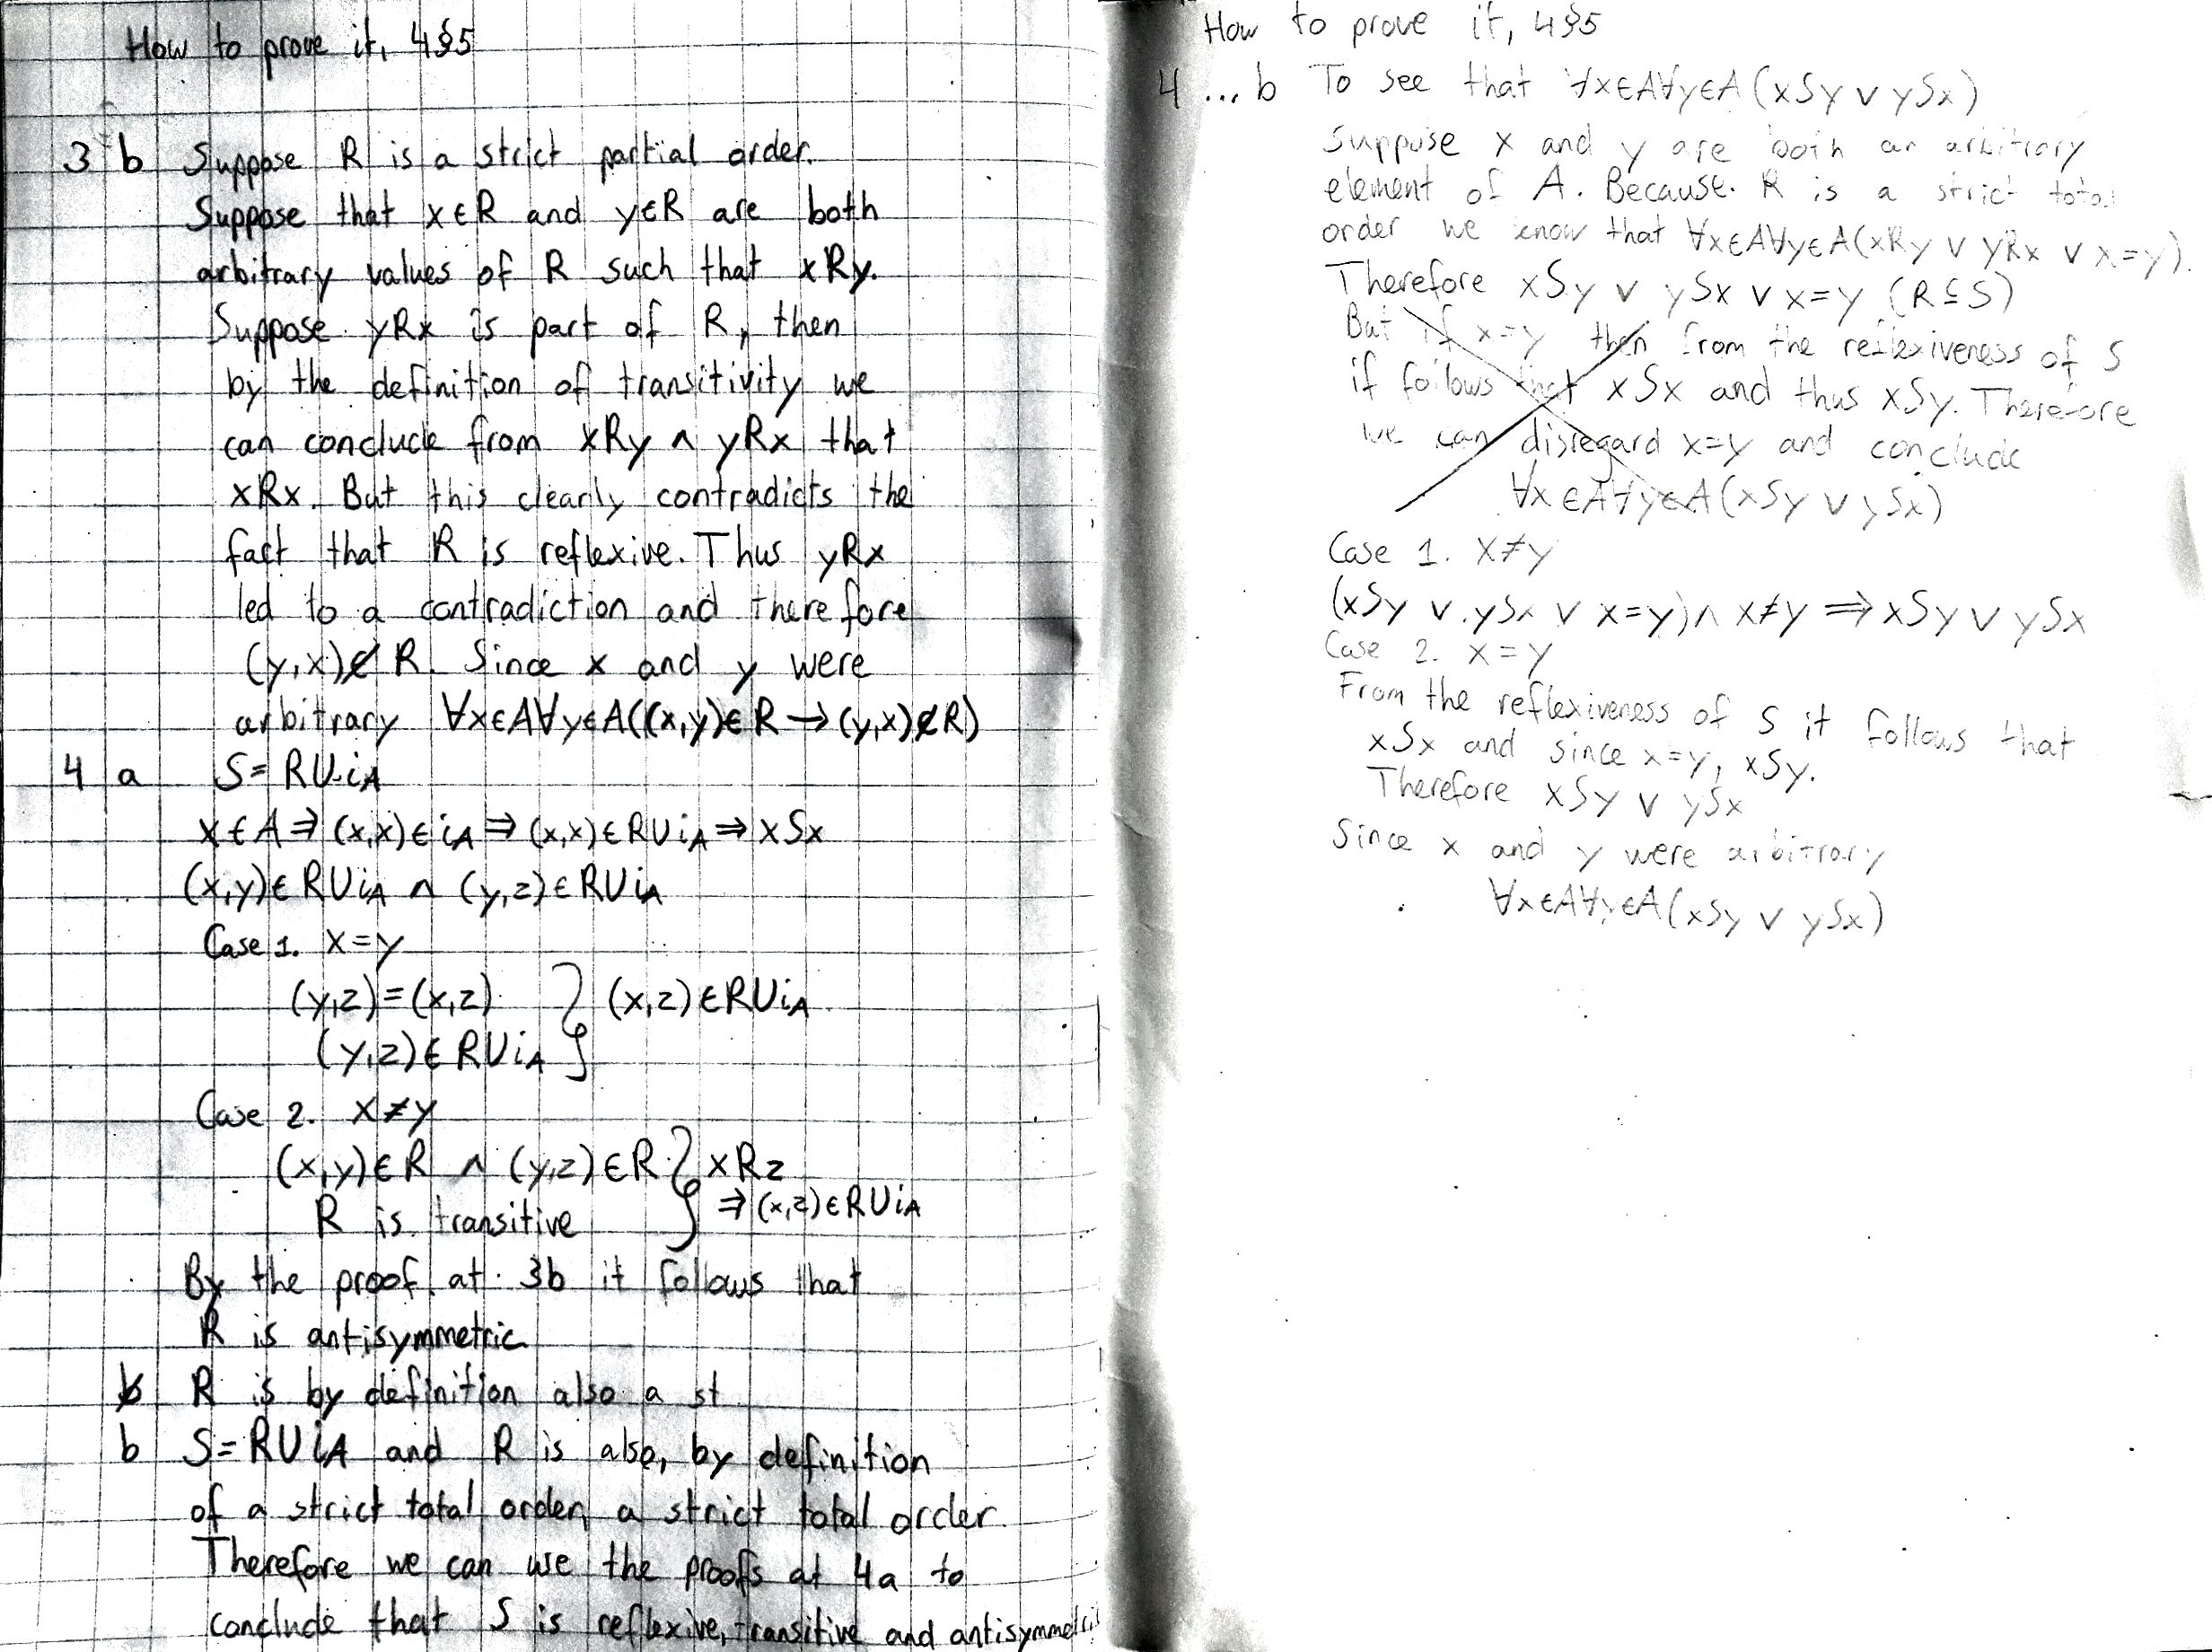 How to prove it, 4§5
3 b Suppose R is a strict partial order.
Suppose that x∈R and y∈R are both
arbitrary values of R such that xRy.
Suppose yRx is part of R, then
by the definition of transitivity we
can conclude from xRy ∧ yRx that
xRx. But this clearly contradicts the
fact that R is reflexive. Thus yRx
led to a contradiction and therefore
(y,x)∉R. Since x and y were
arbitrary ∀x∈A∀y∈A((x,y)∈R→(y,x)∉R)
4 a S=R∪iA
x∈A⇒(x,x)∈iA⇒(x,x)∈R∪iA⇒xSx
(x,y)∈R∪iA ∧ (y,z)∈R∪iA
Case 1. x=y
(y,z)=(x,z) } (x,z)∈R∪iA
(y,z)∈R∪iA
Case 2. x≠y
(x,y)∈R ∧ (y,z)∈R } xRz
R is transitive ⇒(x,z)∈R∪iA
By the proof at 3b it follows that
R is antisymmetric
b R is by definition also a st
b S=R∪iA and R is also, by definition
of a strict total order, a strict total order.
Therefore we can use the proofs at 4a to
conclude that S is reflexive, transitive and antisymmetric
How to prove it, 4§5
4 ...b To see that ∀x∈A∀y∈A(xSy ∨ ySx)
Suppose x and y are both an arbitrary
element of A. Because R is a strict total
order we know that ∀x∈A∀y∈A(xRy ∨ yRx ∨ x=y).
Therefore xSy ∨ ySx ∨ x=y (R⊆S)
But if x=y then from the reflexiveness of S
if follows that xSx and thus xSy. Therefore
we can disregard x=y and conclude
∀x∈A∀y∈A(xSy ∨ ySx)
Case 1. x≠y
(xSy ∨ ySx ∨ x=y)∧ x≠y ⇒ xSy ∨ ySx
Case 2. x=y
From the reflexiveness of S it follows that
xSx and since x=y, xSy.
Therefore xSy ∨ ySx
Since x and y were arbitrary
∀x∈A∀y∈A(xSy ∨ ySx)